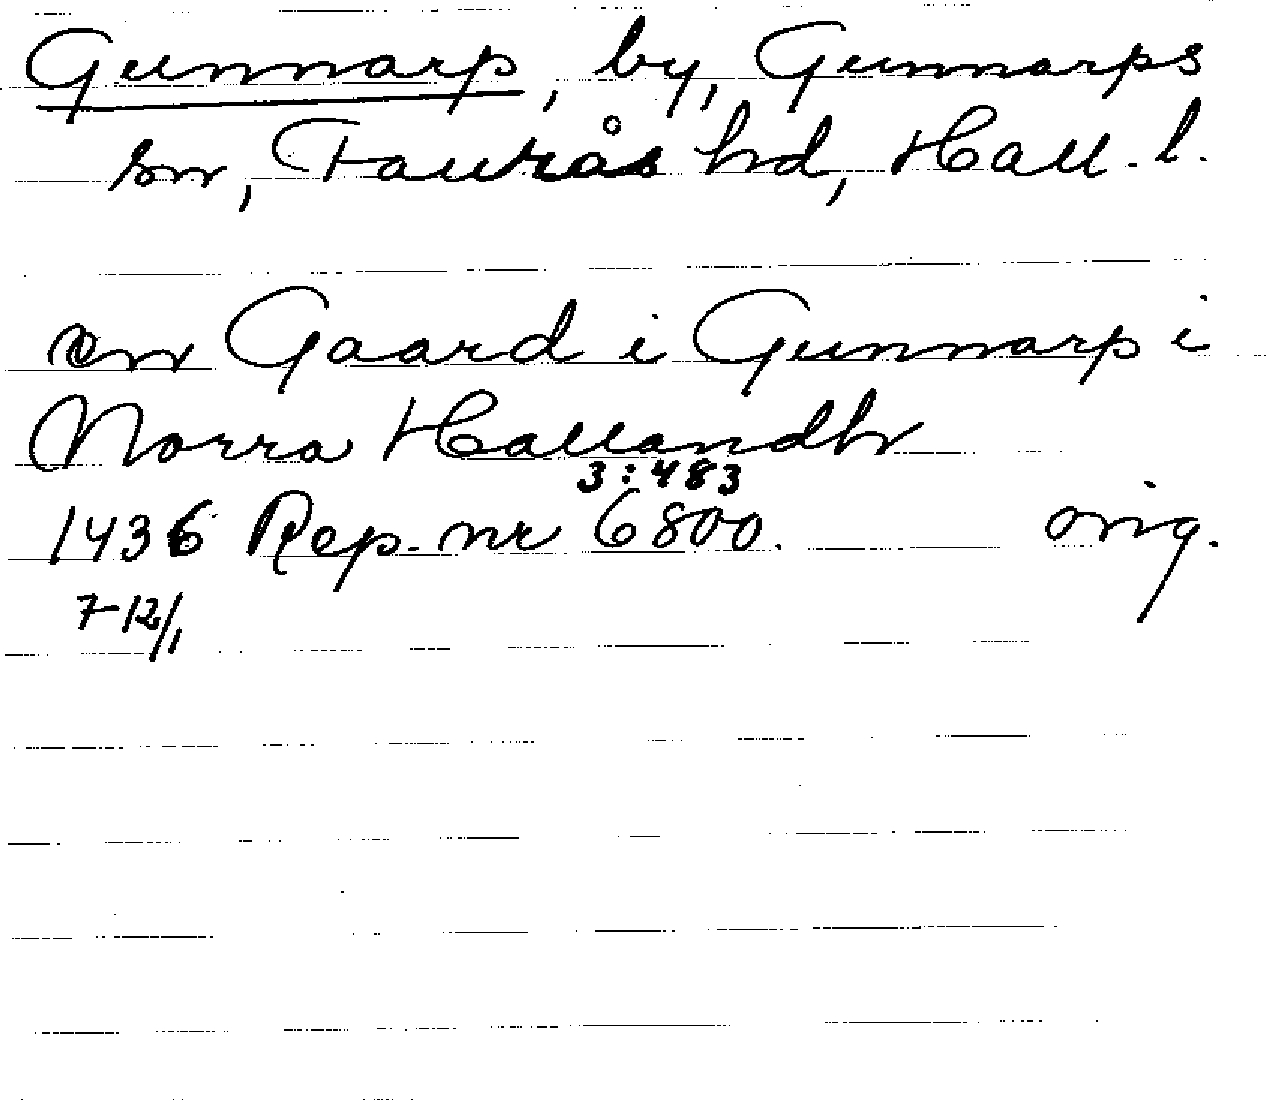 Gunnarp, by, Gunnarps
sn, Faurås hd, Hall. l.
en Gaard i Gunnarp i
Norra Hallandh
3:483
1436 Rep. nr 6800. orig.
7-12/1